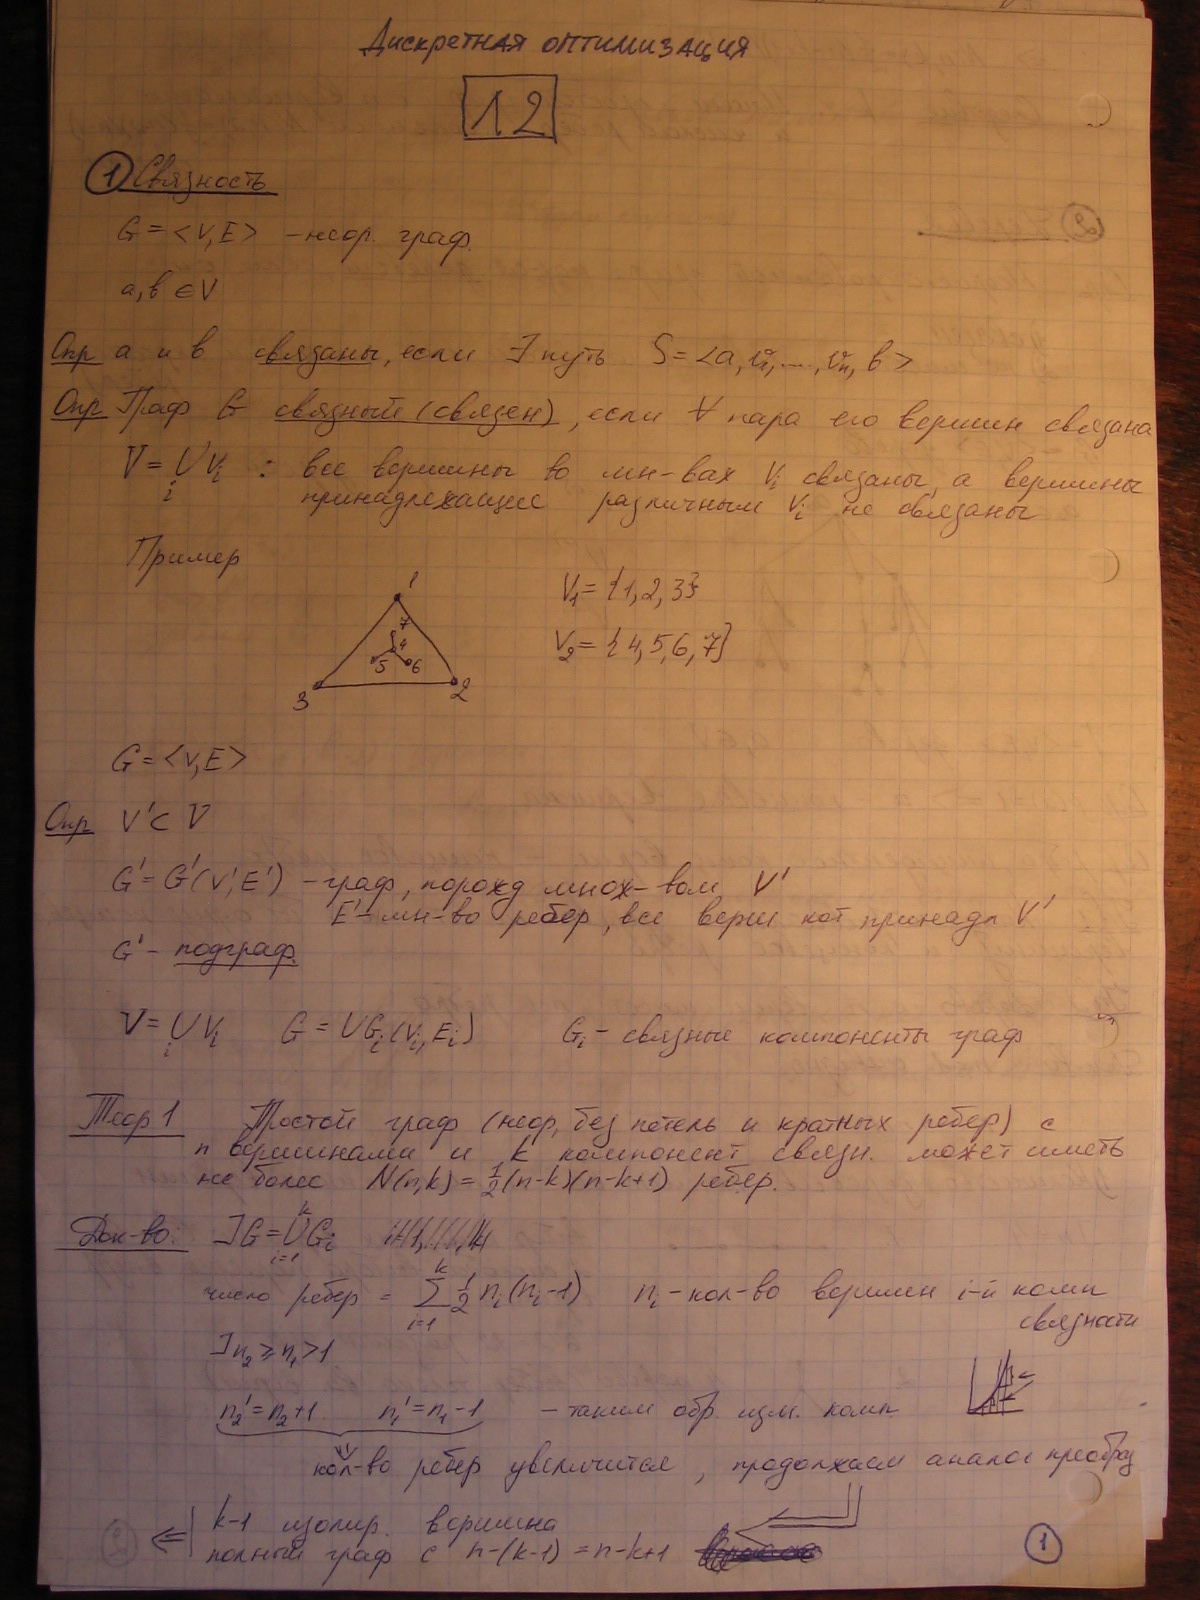 Дискретная оптимизация
12
① Связность
G = <V, E> – неор. граф.
a, b ∈ V
Опр a и b связаны, если ∃ путь S = <a, v₁, ..., vₙ, b>
Опр Граф G связный (связен), если ∀ пара его вершин связана
V = ∪ Vᵢ : все вершины во мн-вах Vᵢ связаны, а вершины
i принадлежащие различным Vᵢ не связаны
Пример
1
7
4
5 6
3 2
V₁ = {1, 2, 3}
V₂ = {4, 5, 6, 7}
G = <V, E>
Опр V' ⊂ V
G' = G'(V', E') – граф, порожд множ-вом V'
E' – мн-во ребер, все верш кот принадл V'
G' – подграф.
V = ∪ Vᵢ G = ∪Gᵢ(Vᵢ, Eᵢ) Gᵢ – связные компоненты граф
i
Теор 1 Простой граф (неор, без петель и кратных ребер) с
n вершинами и k компонент связн. может иметь
не более N(n,k) = ½(n-k)(n-k+1) ребер.
Док-во: ]G = ∪ᵢ₌₁ᵏ Gᵢ
число ребер = ∑ᵢ₌₁ᵏ ½ nᵢ(nᵢ-1) nᵢ – кол-во вершин i-й комп
связности
]n₂ ≥ n₁ > 1
n₂' = n₂+1 n₁' = n₁-1 – таким обр. изм. комп
⇓
кол-во ребер увеличится, продолжаем аналог преобраз
⇐ k-1 изолир. вершина
полный граф с n-(k-1) = n-k+1
①